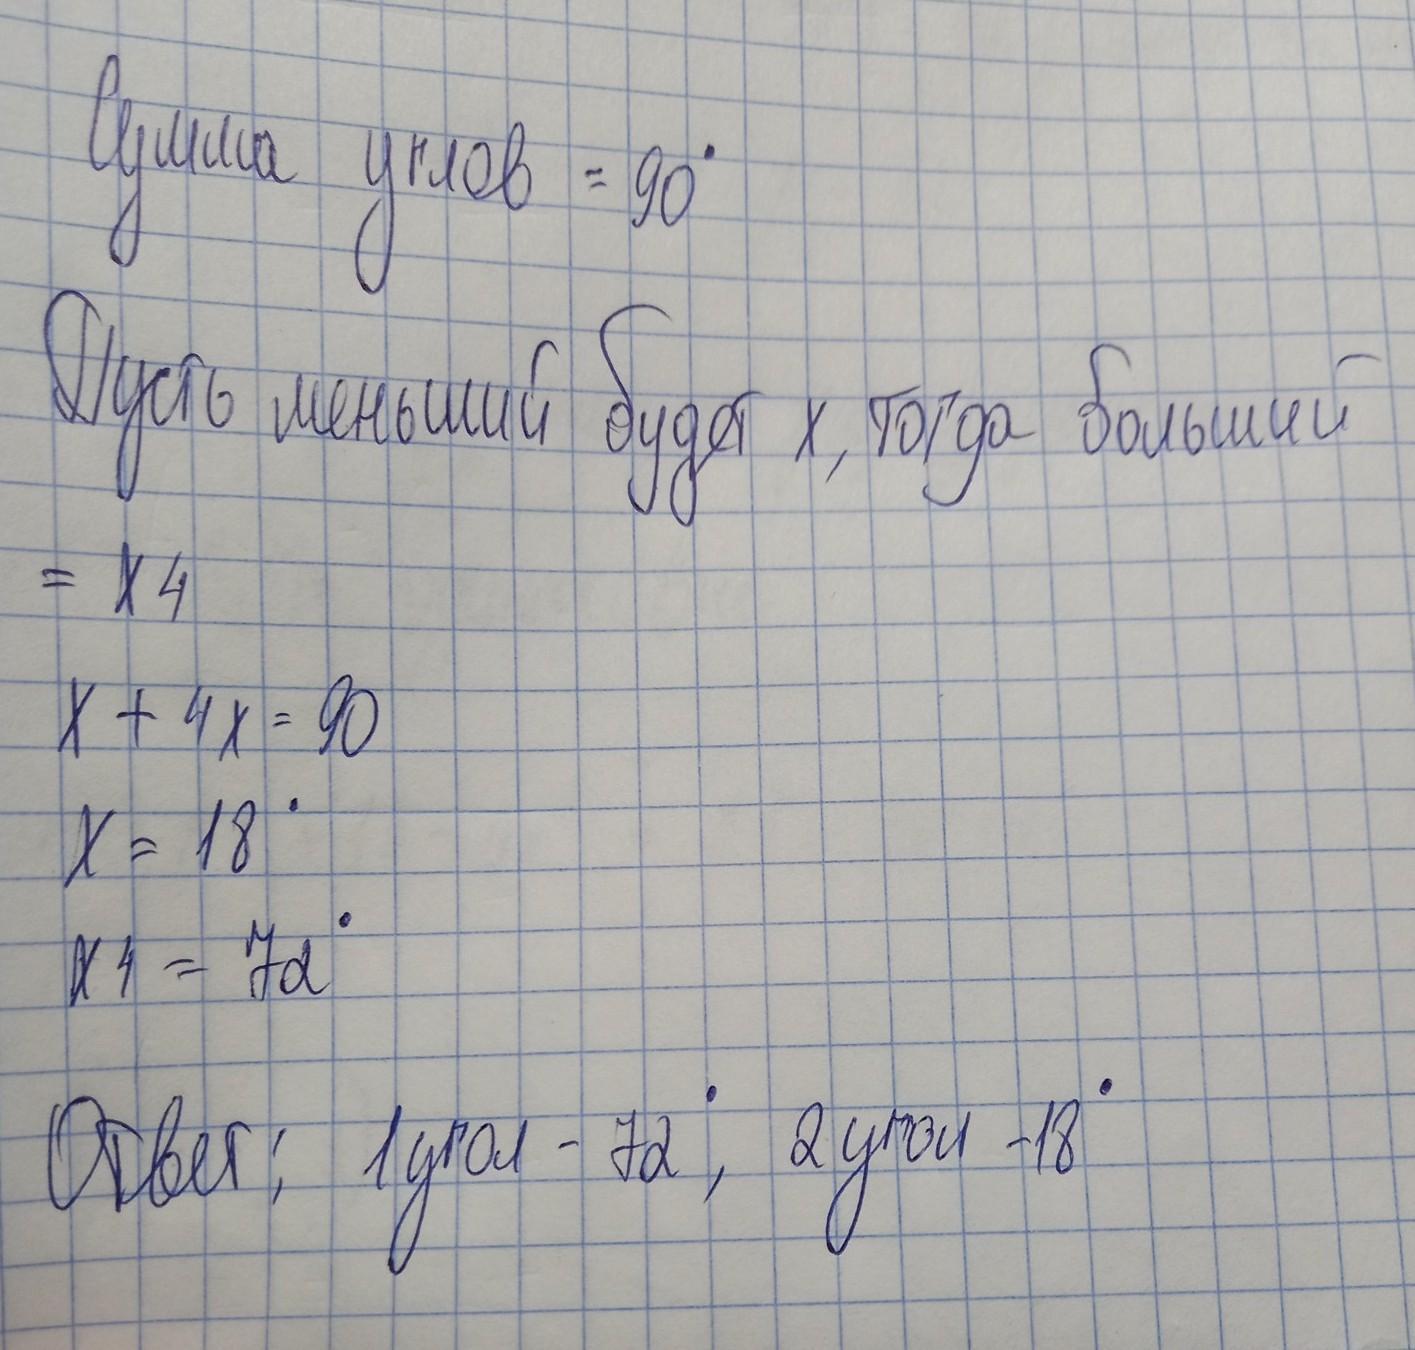 Сумма углов = 90°
Пусть меньший будет х, тогда больший
= х4
х + 4х = 90
х = 18°
х4 = 72°
Ответ; 1угол - 72°; 2угол - 18°